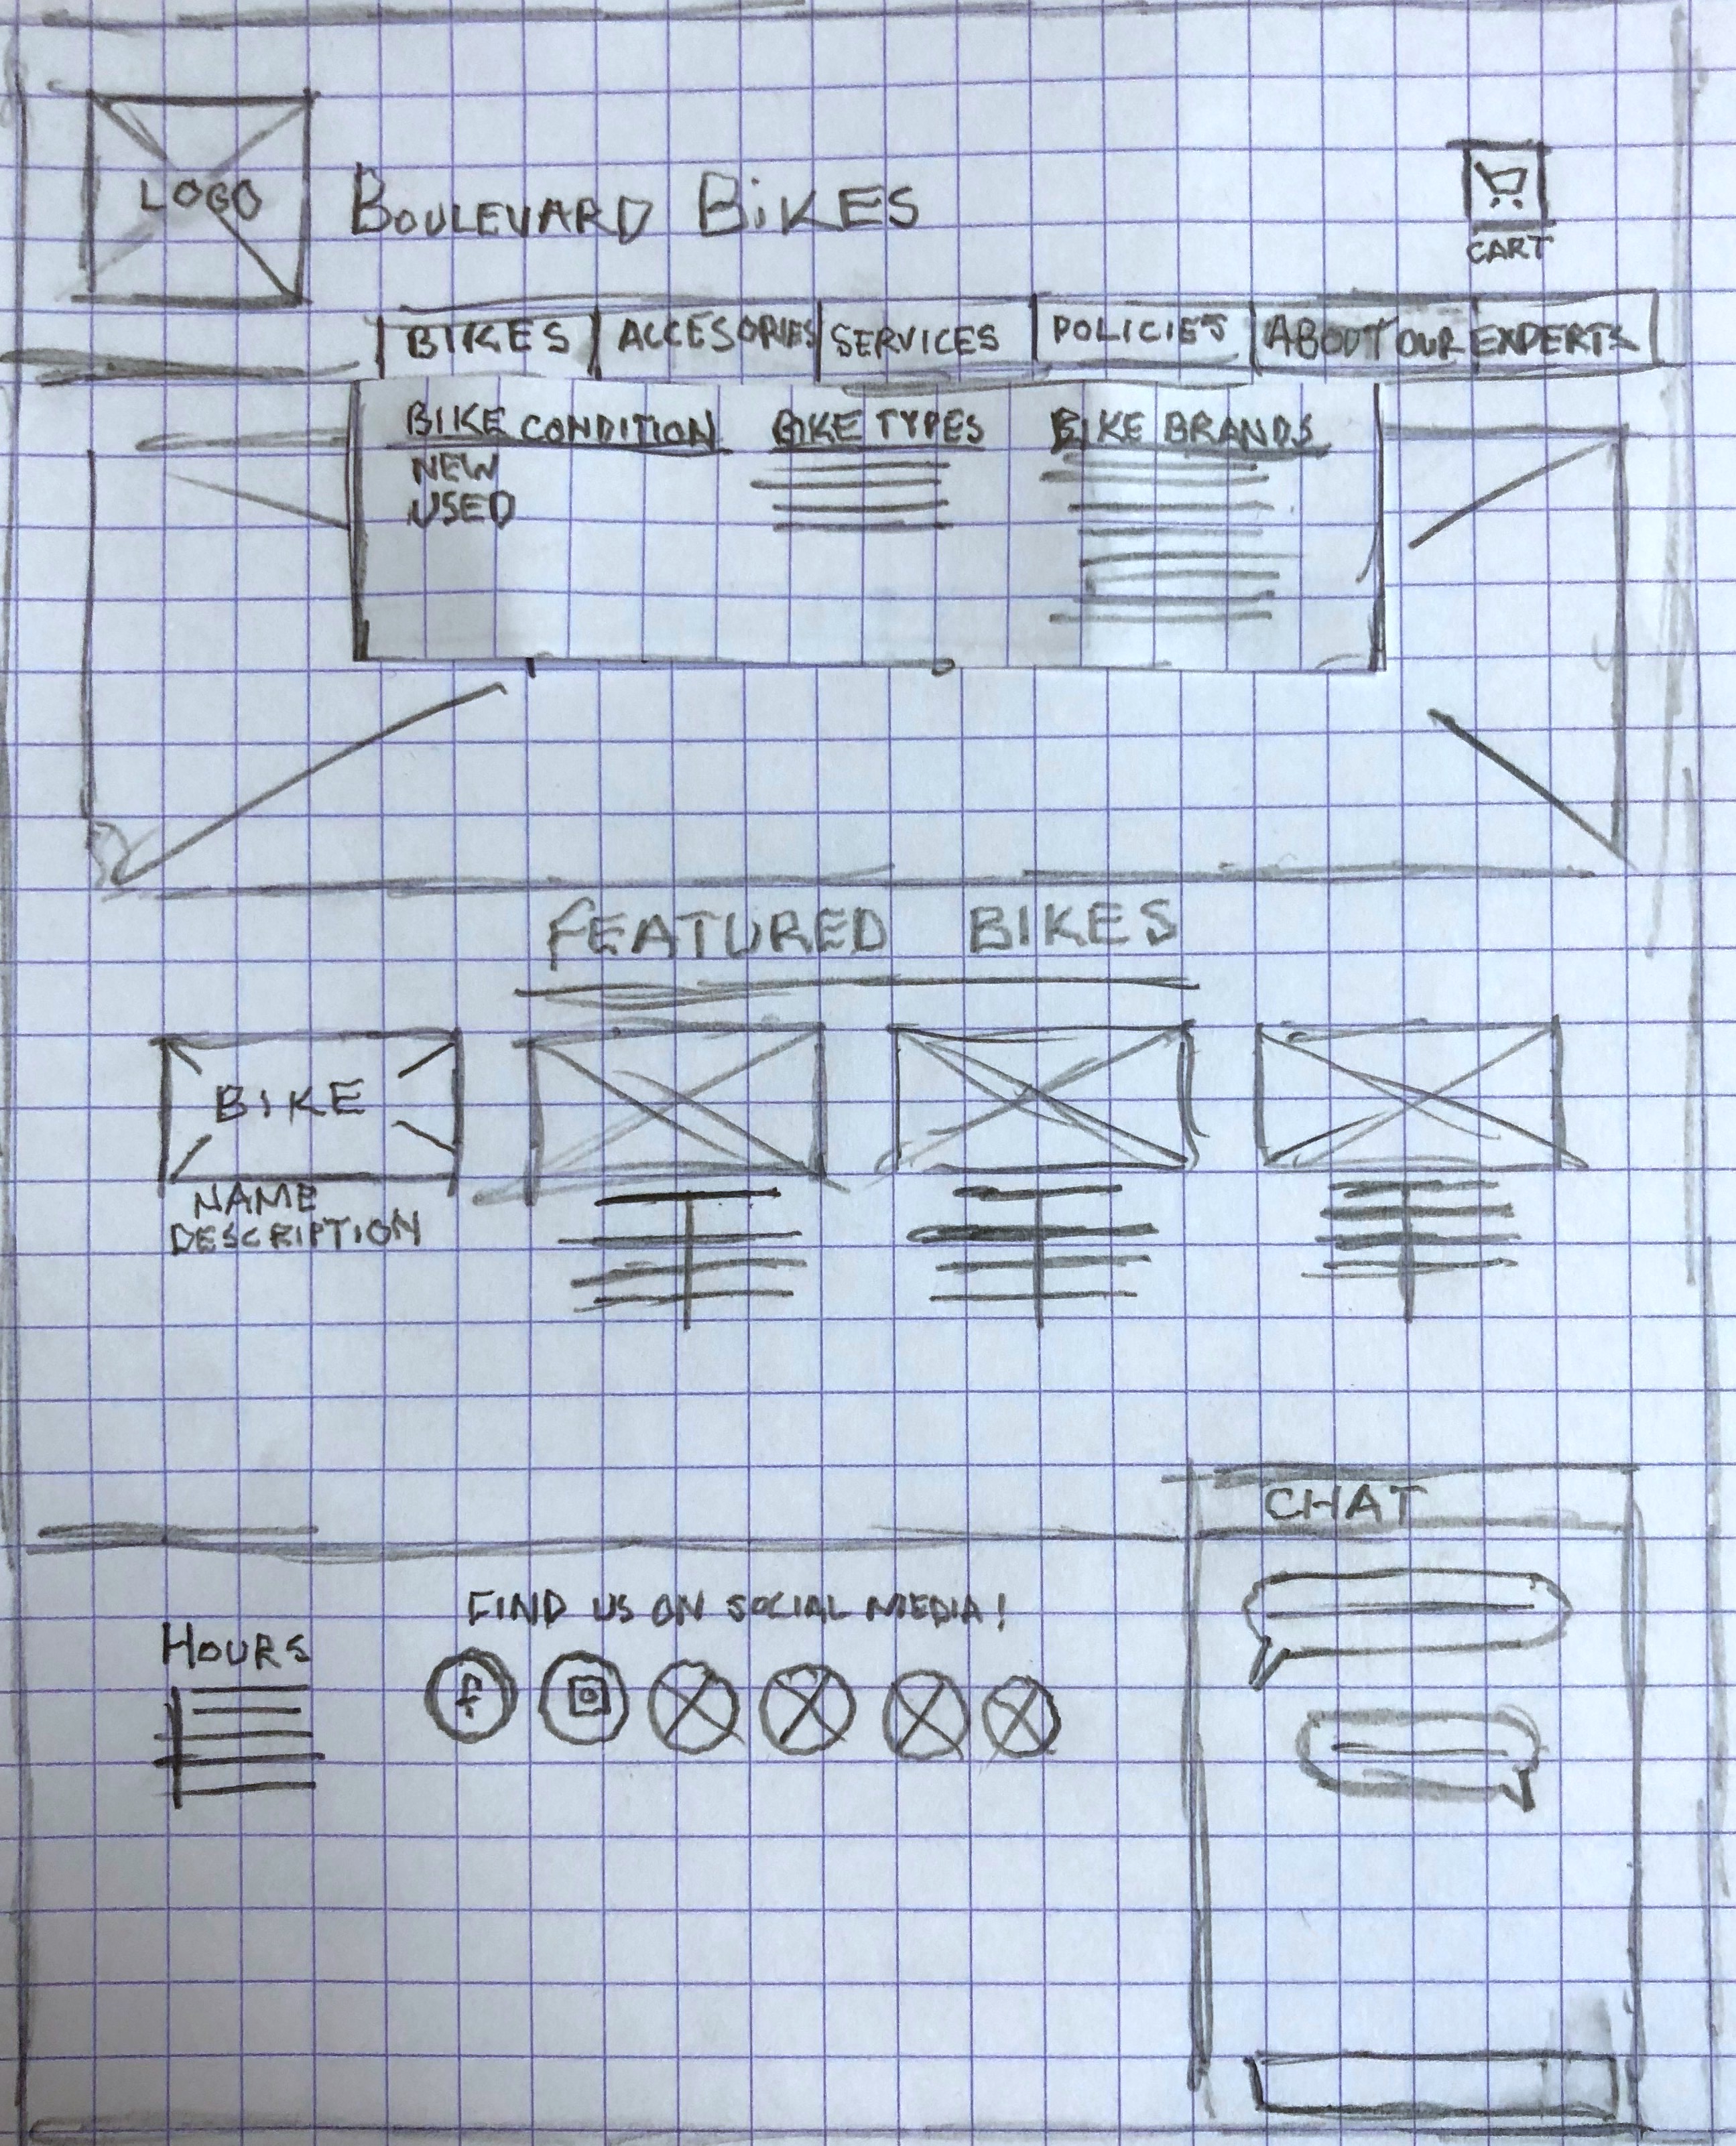 LOGO
BOULEVARD BIKES
CART
BIKES ACCESORIES SERVICES POLICIES ABOUT OUR EXPERTS
BIKE CONDITION BIKE TYPES BIKE BRANDS
NEW
USED
FEATURED BIKES
BIKE
NAME
DESCRIPTION
CHAT
FIND US ON SOCIAL MEDIA!
HOURS
f